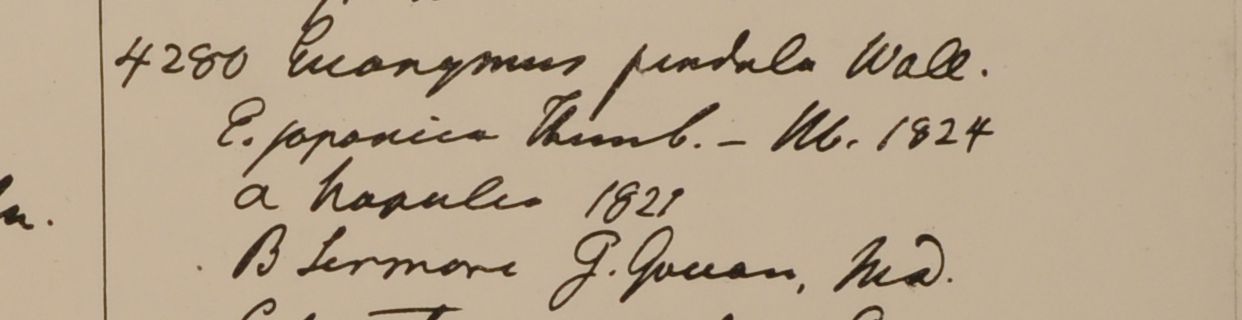 4280 Euonymus pendula Wall.
E. japonica Thunb. – Ms. 1824
a Napalia 1821
n.
B Sermore G. Govan, Md.